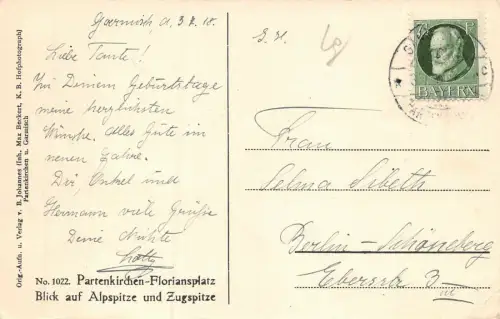 Garmisch, d. 3. X. 18.
Liebe Tante!
Zu Deinem Geburtstage
meine herzlichsten
Wünsche. Alles Gute im
neuen Jahre.
Dir, Onkel und
Hermann viele Grüße
Deine Nichte
Lotte
No. 1022. Partenkirchen-Floriansplatz
Blick auf Alpspitze und Zugspitze
Orig.-Aufn. u. Verlag v. B. Johannes (Inh. Max Beckert, K. B. Hofphotograph)
Partenkirchen u. Garmisch
BAYERN
Frau
Selma Sibeth
Berlin-Schöneberg
Eberstr. 3